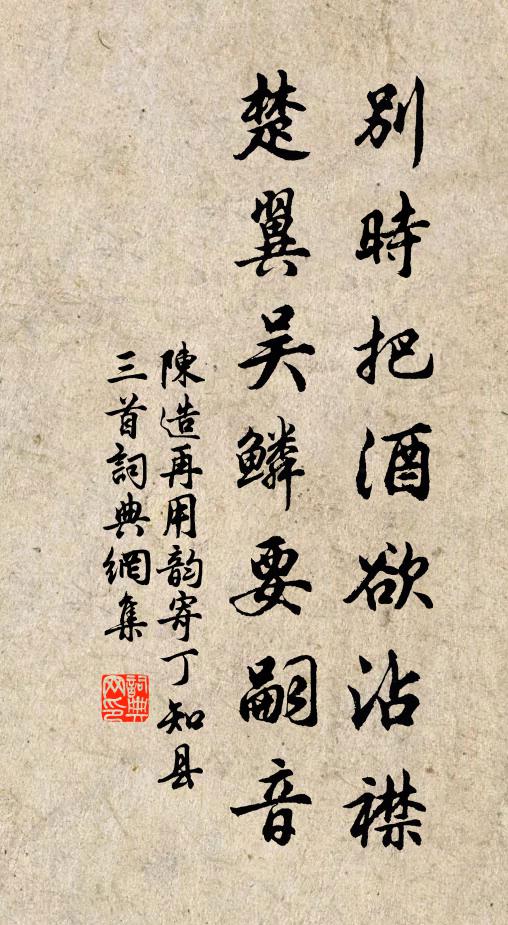 別時把酒欲沾襟
楚翼吴鱗要嗣音
陳造再用韵寄丁知县
三首詞典網集
詞典网印